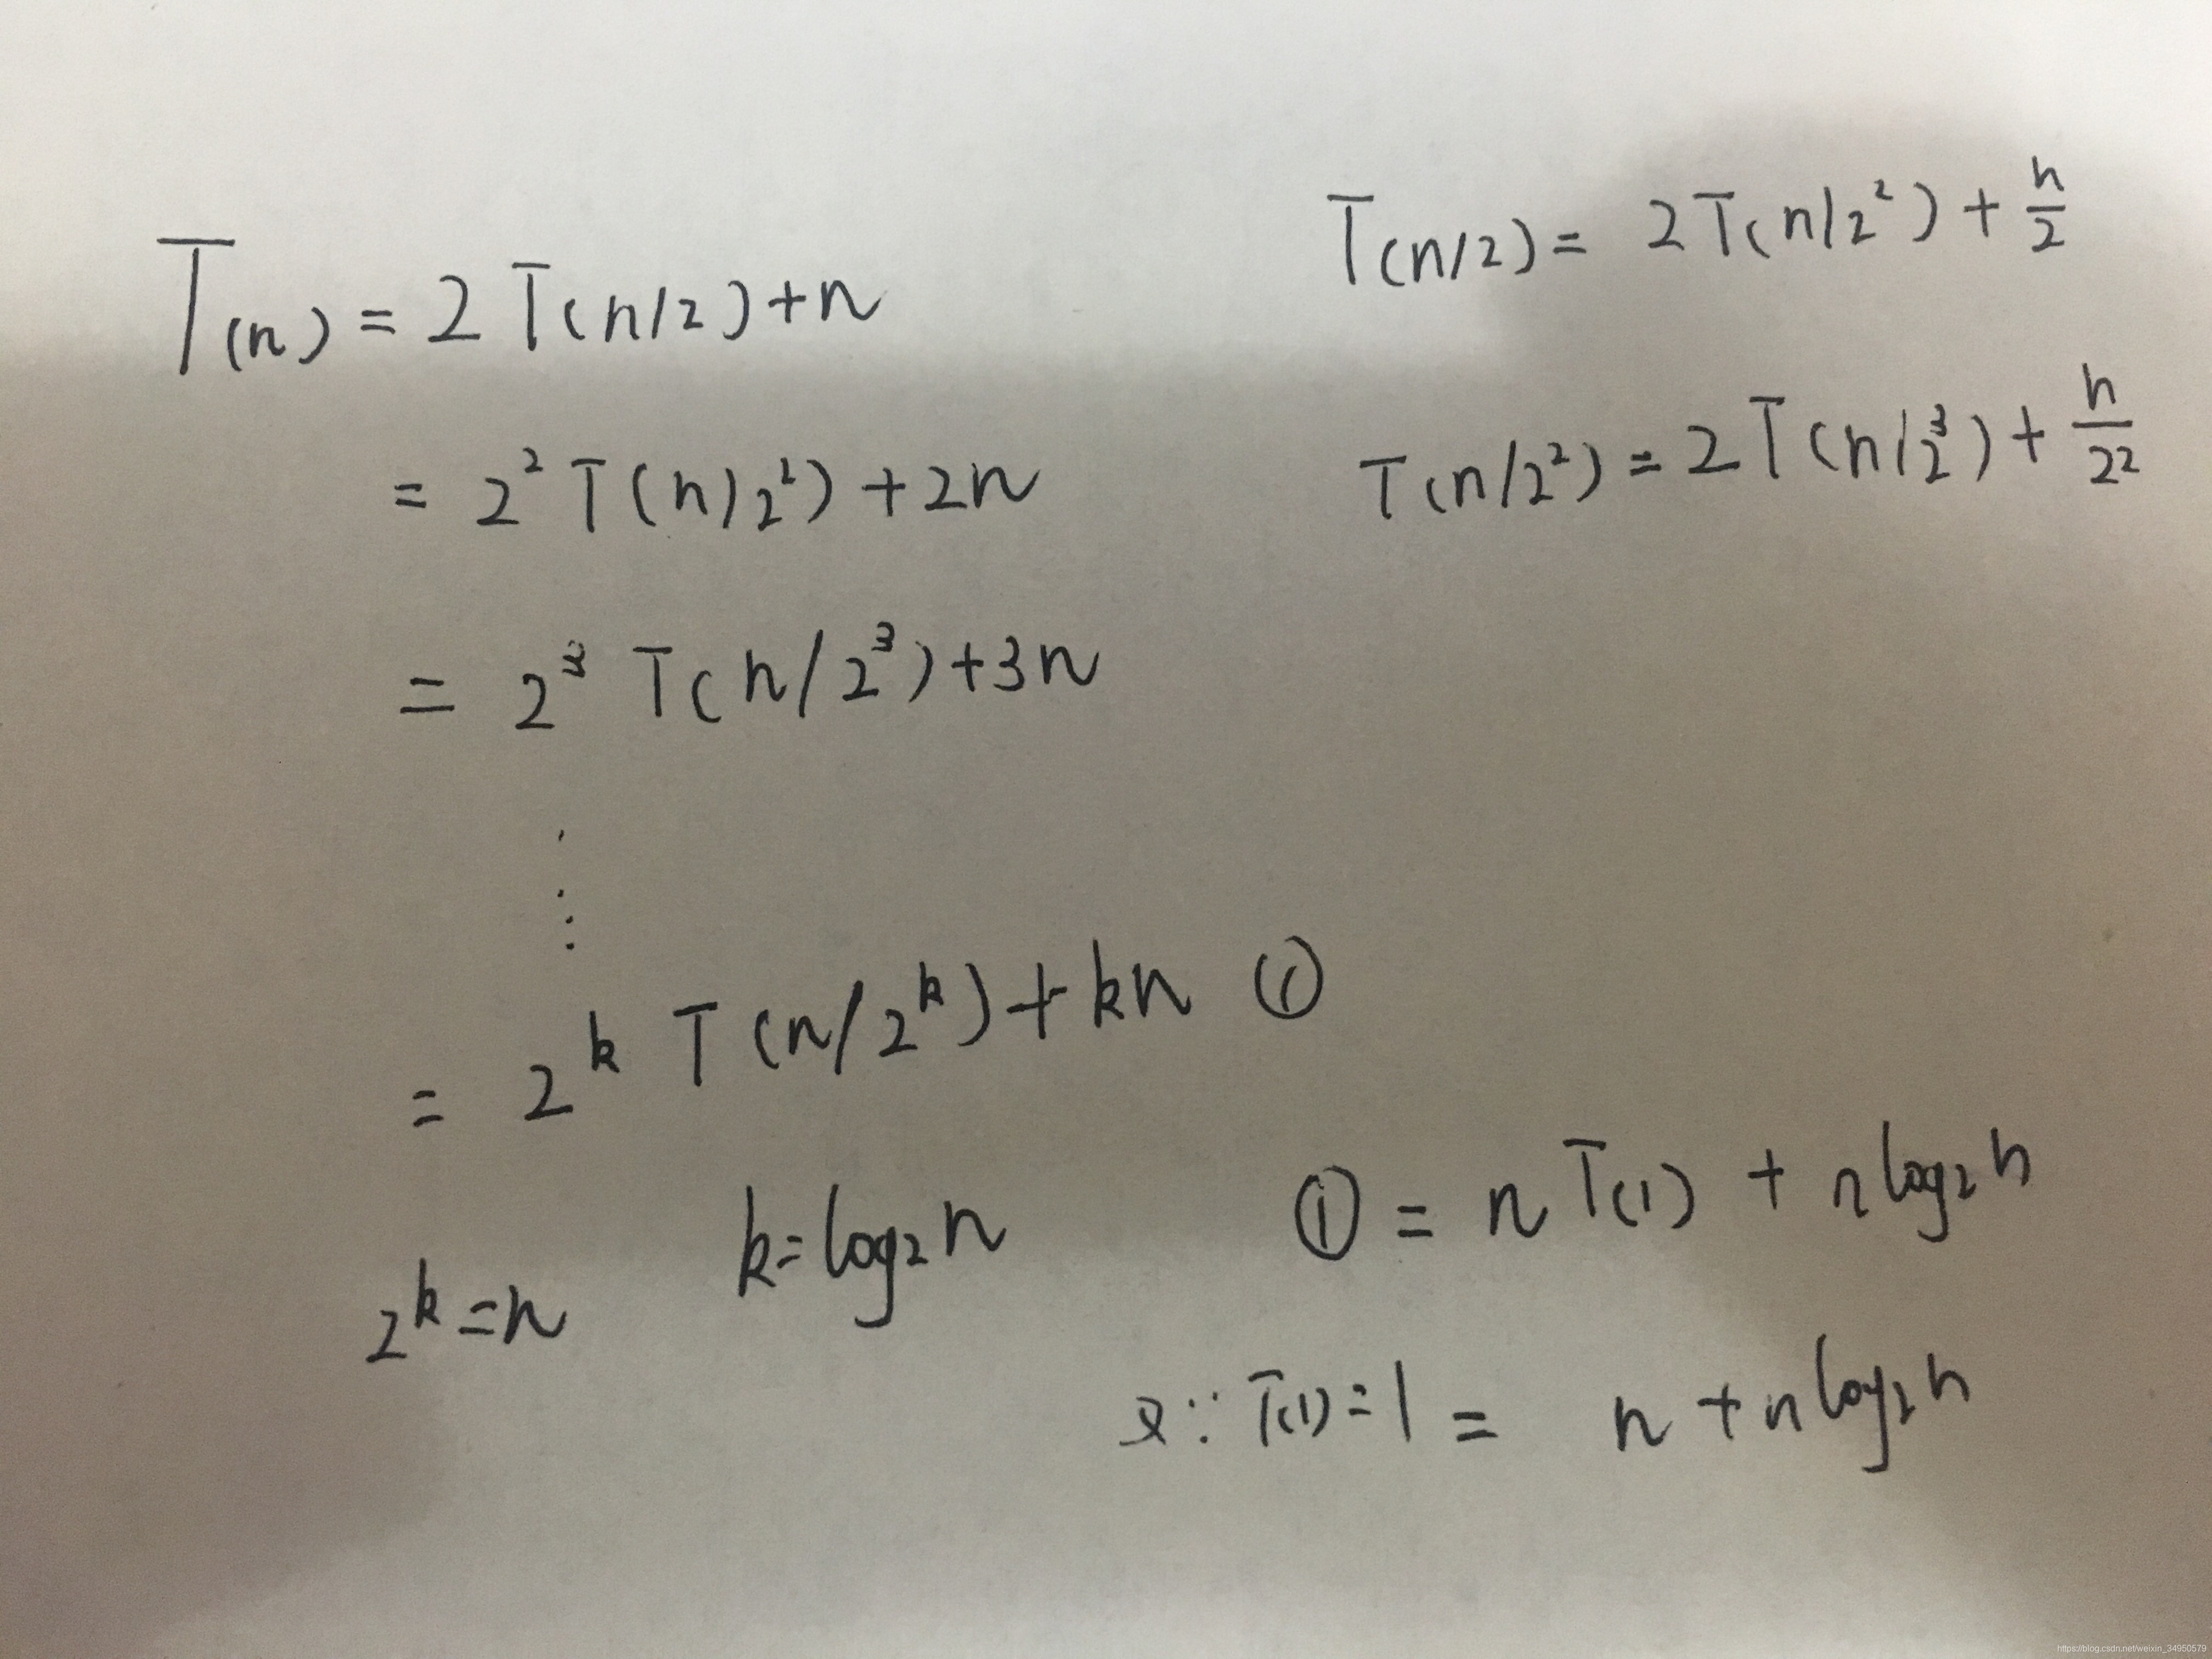 T(n) = 2T(n/2)+n
T(n/2) = 2T(n/2²) + n/2
= 2² T(n/2²) + 2n
T(n/2²) = 2T(n/2³) + n/2²
= 2³ T(n/2³) + 3n
⋮
= 2^k T(n/2^k) + kn ①
2^k = n k = log₂n ① = nT(1) + nlog₂n
又∵ T(1) = 1 = n + nlog₂n
https://blog.csdn.net/weixin_34950579